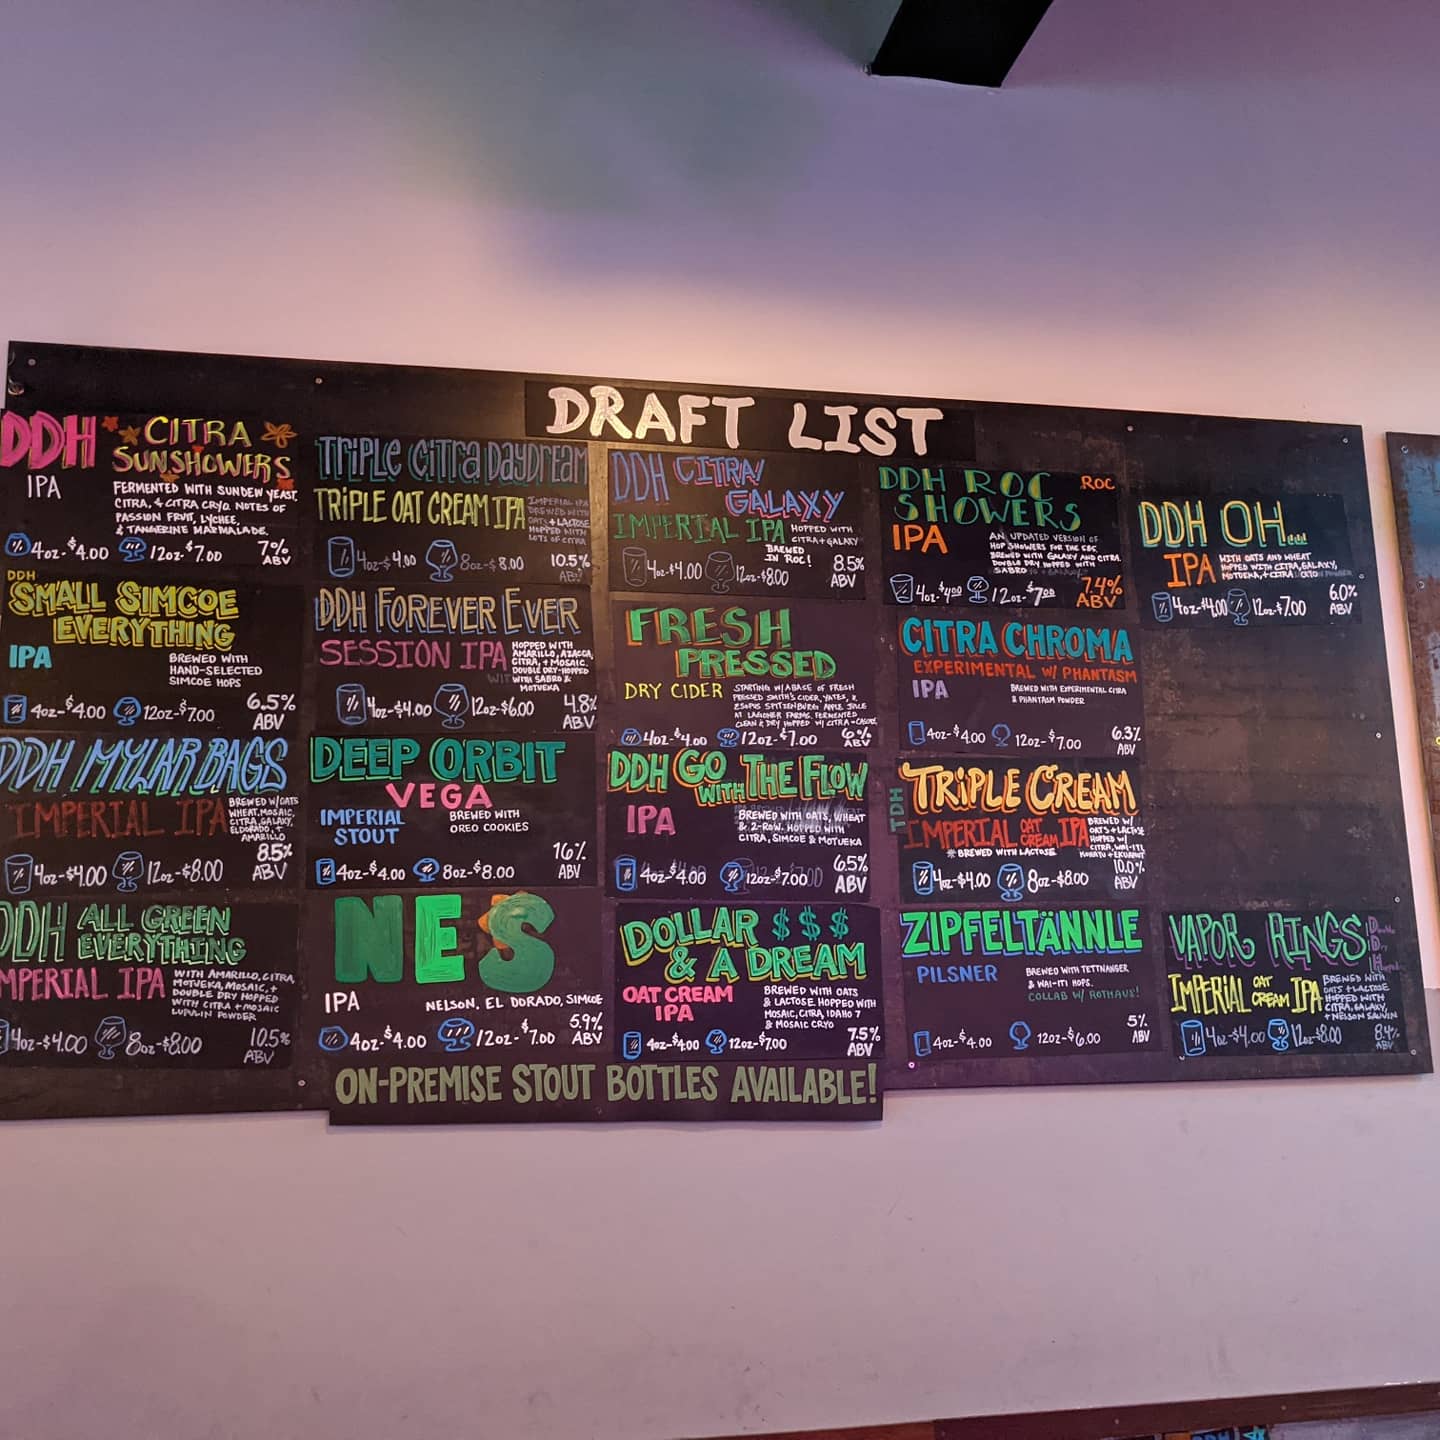 DRAFT LIST
DDH CITRA
SUNSHOWERS
IPA
FERMENTED WITH SUNDEW YEAST,
CITRA, & CITRA CRYO. NOTES OF
PASSION FRUIT, LYCHEE,
& TANGERINE MARMALADE.
4oz-$4.00 12oz-$7.00 7% ABV
DDH
SMALL SIMCOE
EVERYTHING
IPA
BREWED WITH
HAND-SELECTED
SIMCOE HOPS
4oz-$4.00 12oz-$7.00 6.5% ABV
DDH MYLAR BAGS
IMPERIAL IPA
BREWED W/OATS
WHEAT, MOSAIC,
CITRA, GALAXY,
ELDORADO, +
AMARILLO
4oz-$4.00 12oz-$8.00 8.5% ABV
DDH ALL GREEN
EVERYTHING
IMPERIAL IPA
WITH AMARILLO, CITRA,
MOTUEKA, MOSAIC, +
DOUBLE DRY HOPPED
WITH CITRA + MOSAIC
LUPULIN POWDER
4oz-$4.00 8oz-$8.00 10.5% ABV
TRIPLE CITRA DAYDREAM
TRIPLE OAT CREAM IPA
IMPERIAL IPA
BREWED WITH
OATS + LACTOSE
HOPPED WITH
LOTS OF CITRA
4oz-$4.00 8oz-$8.00 10.5% ABV
DDH FOREVER EVER
SESSION IPA
HOPPED WITH
AMARILLO, AZACCA,
CITRA, + MOSAIC.
DOUBLE DRY-HOPPED
WITH SABRO &
MOTUEKA
4oz-$4.00 12oz-$6.00 4.8% ABV
DEEP ORBIT
VEGA
IMPERIAL
STOUT
BREWED WITH
OREO COOKIES
4oz-$4.00 8oz-$8.00 16% ABV
NES
IPA
NELSON, EL DORADO, SIMCOE
4oz-$4.00 12oz-$7.00 5.9% ABV
DDH CITRA/
GALAXY
IMPERIAL IPA
HOPPED WITH
CITRA + GALAXY
BREWED
IN ROC!
4oz-$4.00 12oz-$8.00 8.5% ABV
FRESH
PRESSED
DRY CIDER
STARTING W/ A BASE OF FRESH
PRESSED SMITH'S CIDER, YATES, &
ESOPUS SPITZENBURG APPLE JUICE
AT LAGONER FARMS. FERMENTED
CLEAN & DRY HOPPED W/ CITRA +
4oz-$4.00 12oz-$7.00 6% ABV
DDH GO WITH THE FLOW
IPA
BREWED WITH OATS, WHEAT
& 2-ROW. HOPPED WITH
CITRA, SIMCOE & MOTUEKA
4oz-$4.00 12oz-$7.00 6.5% ABV
DOLLAR $ $ $
& A DREAM
OAT CREAM
IPA
BREWED WITH OATS
& LACTOSE. HOPPED WITH
MOSAIC, CITRA, IDAHO 7
& MOSAIC CRYO
4oz-$4.00 12oz-$7.00 7.5% ABV
DDH ROC ROC
SHOWERS
IPA
AN UPDATED VERSION OF
HOP SHOWERS FOR THE 585.
BREWED WITH GALAXY AND CITRA.
DOUBLE DRY HOPPED WITH
SABRO
4oz-$4.00 12oz-$7.00 7.4% ABV
CITRA CHROMA
EXPERIMENTAL W/ PHANTASM
IPA
BREWED WITH EXPERIMENTAL CITRA
& PHANTASM POWDER
4oz-$4.00 12oz-$7.00 6.3% ABV
TDH
TRIPLE CREAM
IMPERIAL OAT CREAM IPA
*BREWED WITH LACTOSE
BREWED W/
OATS + LACTOSE
HOPPED W/
CITRA, WAI-ITI,
KOHATU + EKUANOT
4oz-$4.00 8oz-$8.00 10.0% ABV
ZIPFELTÄNNLE
PILSNER
BREWED WITH TETTNANGER
& WAI-ITI HOPS.
COLLAB W/ ROTHAUS!
4oz-$4.00 12oz-$6.00 5% ABV
DDH OH...
IPA
WITH OATS AND WHEAT
HOPPED WITH CITRA, GALAXY,
MOTUEKA, + CITRA CRYO
4oz-$4.00 12oz-$7.00 6.0% ABV
VAPOR RINGS
Double
Dry
Hopped
IMPERIAL OAT CREAM IPA
BREWED WITH
OATS + LACTOSE
HOPPED WITH
CITRA, GALAXY,
+ NELSON SAUVIN
4oz-$4.00 12oz-$8.00 8.4% ABV
ON-PREMISE STOUT BOTTLES AVAILABLE!